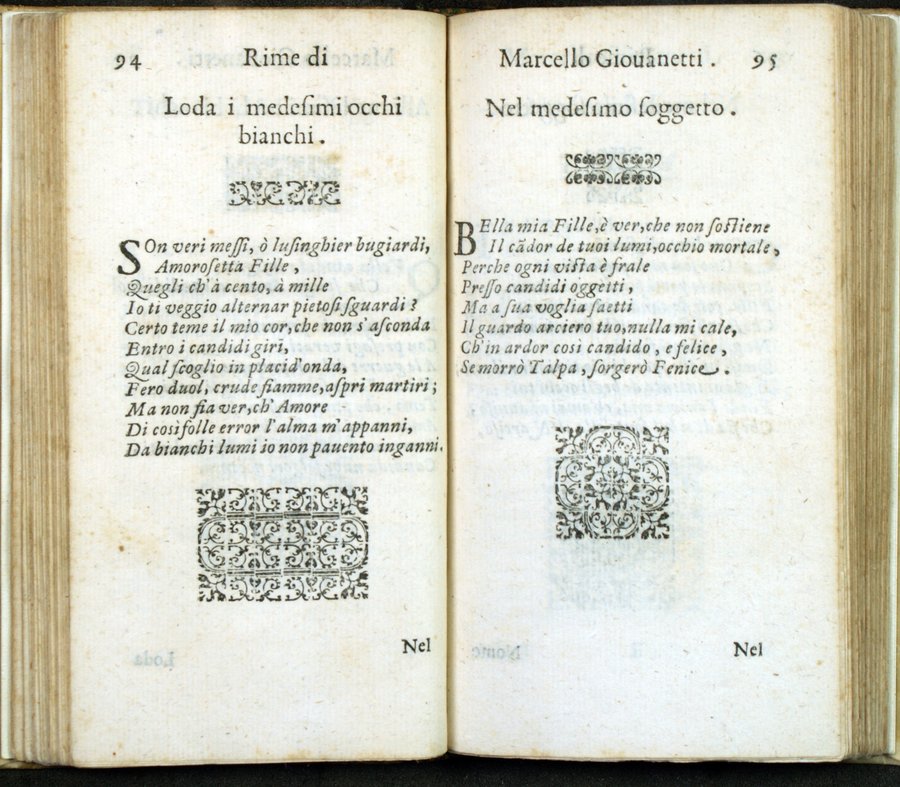 94 Rime di
Loda i medeſimi occhi
bianchi.
SOn veri meſſi, ò luſinghier bugiardi,
Amoroſetta Fille,
Quegli ch'à cento, à mille
Io ti veggio alternar pietoſi sguardi?
Certo teme il mio cor, che non s'aſconda
Entro i candidi giri,
Qual ſcoglio in placid'onda,
Fero duol, crude fiamme, aſpri martiri;
Ma non fia ver, ch'Amore
Di così folle error l'alma m'appanni,
Da bianchi lumi io non pauento inganni.
Nel
Marcello Giouanetti. 95
Nel medeſimo ſoggetto.
BElla mia Fille, è ver, che non ſoſtiene
Il cādor de tuoi lumi, occhio mortale,
Perche ogni viſta è frale
Preſſo candidi oggetti,
Ma a ſua voglia ſaetti
Il guardo arciero tuo, nulla mi cale,
Ch'in ardor così candido, e felice,
Se morrò Talpa, ſorgerò Fenice.
Nel